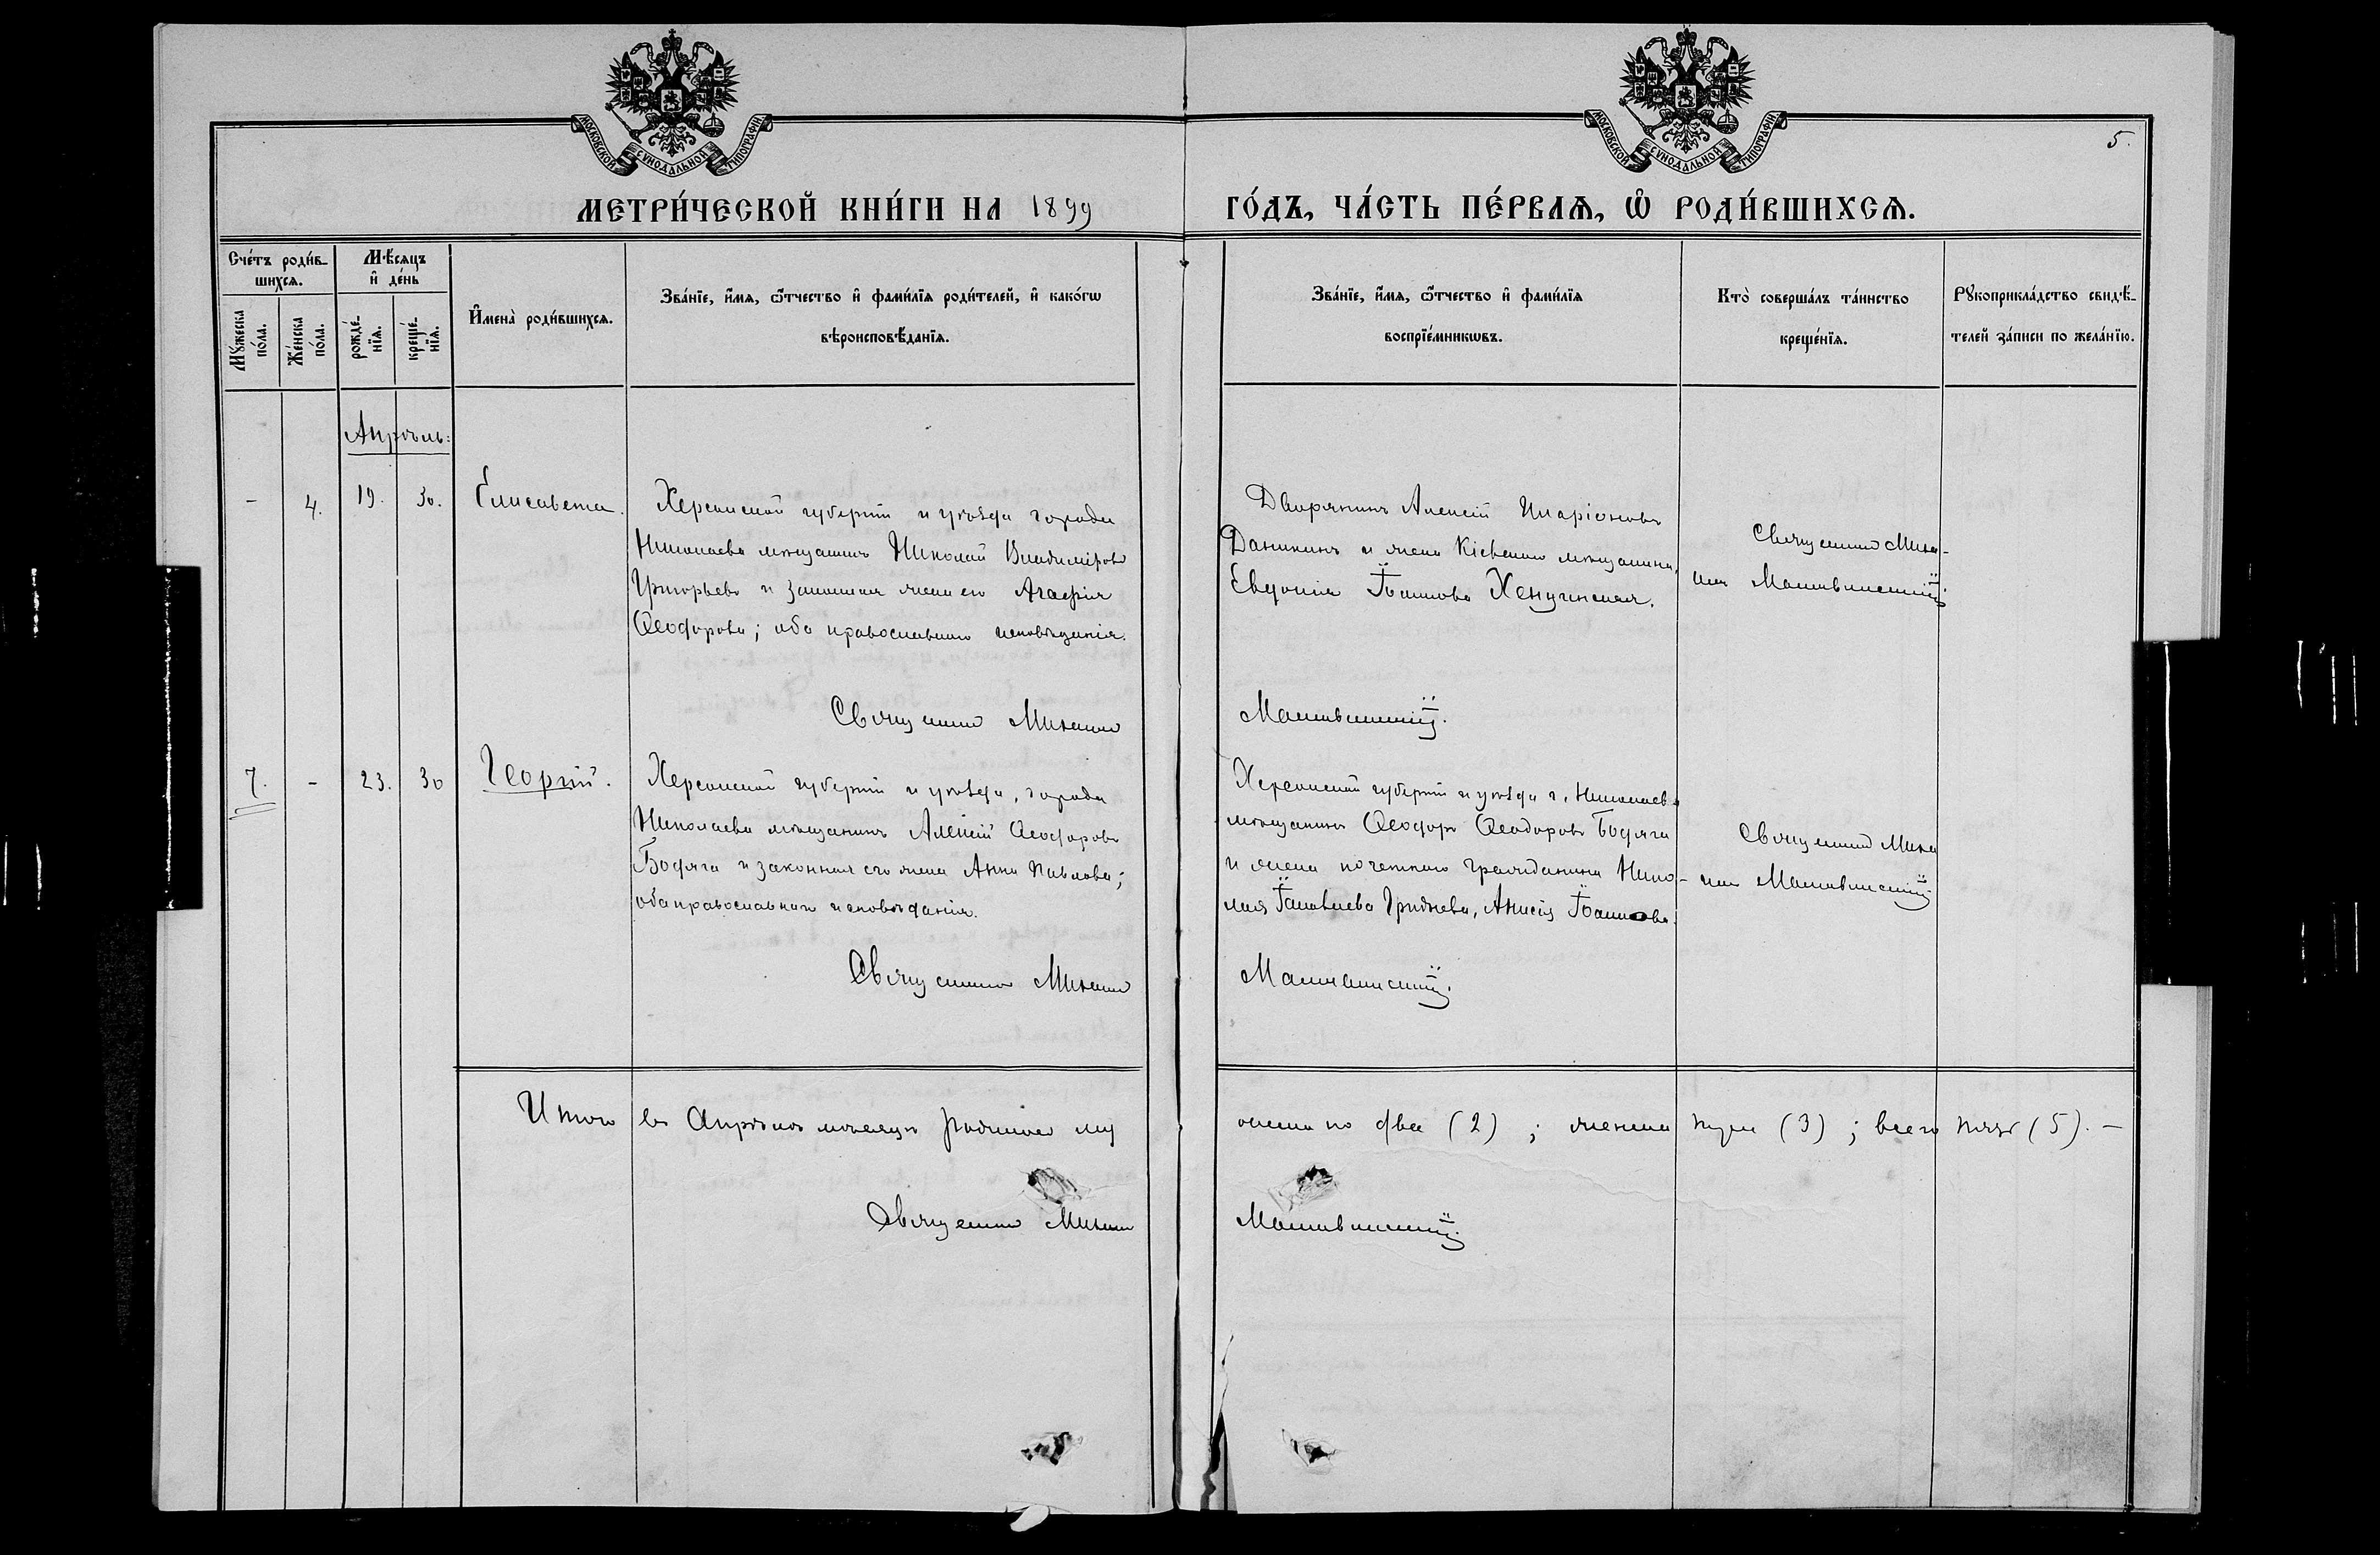 МОСКОВСКОЙ СѴНОДАЛЬНОЙ ТИПОГРАФІИ
МОСКОВСКОЙ СѴНОДАЛЬНОЙ ТИПОГРАФІИ
5.
МЕТРИ́ЧЕСКОЙ КНИ́ГИ НА 1899 ГО́ДЪ, ЧА́СТЬ ПЕ́РВАѦ, Ѡ҆ РОДИ́ВШИХСѦ.
Сче́тъ роди́в-
шихсѧ.
Мꙋжеска
по́ла.
Же́нска
по́ла.
Мѣ́сяцъ
и҆ де́нь
рожде́-
нїѧ.
креще́-
нїѧ.
И҆мена̀ роди́вшихсѧ.
Зва́нїе, и҆́мѧ, ѻ҆́тчество и҆ фами́лїѧ роди́телей, и҆ како́гѡ
вѣроисповѣ́данїѧ.
Зва́нїе, и҆́мѧ, ѻ҆́тчество и҆ фами́лїѧ
воспрїе́мникѡвъ.
Кто̀ соверша́лъ та́инство
креще́нїѧ.
Рꙋкоприкла́дство свидѣ́-
телей за́писи по жела́нїю.
Апрѣль:
- 4. 19. 30. Елисавета.
Херсонской губерніи и уѣзда города
Николаева мѣщанинъ Николай Владиміровъ
Григорьевъ и законная жена его Агафія
Ѳеодорова; оба православнаго исповѣданія.
Дворянинъ Алексій Иларіоновъ
и жена Кіевскаго мѣщанина,
Евдокія
Священникъ Миха-
илъ
Священникъ Михаилъ
7. - 23. 30 Георгій.
Херсонской губерніи и уѣзда, города
Николаева мѣщанинъ Алексій Ѳеодоровъ
Бодяга и законная его жена Анна Павлова;
оба православнаго исповѣданія.
Херсонской губерніи и уѣзда г. Николаева
мѣщанинъ Ѳеодоръ Ѳеодоровъ Бодяга
и жена почетнаго гражданина Нико-
лая
Священникъ Миха
илъ
Священникъ Михаилъ
Итого въ Апрѣлѣ мѣсяцѣ родилось му
жеска по два (2); женска три (3); всего пять (5). -
Священникъ Михаилъ